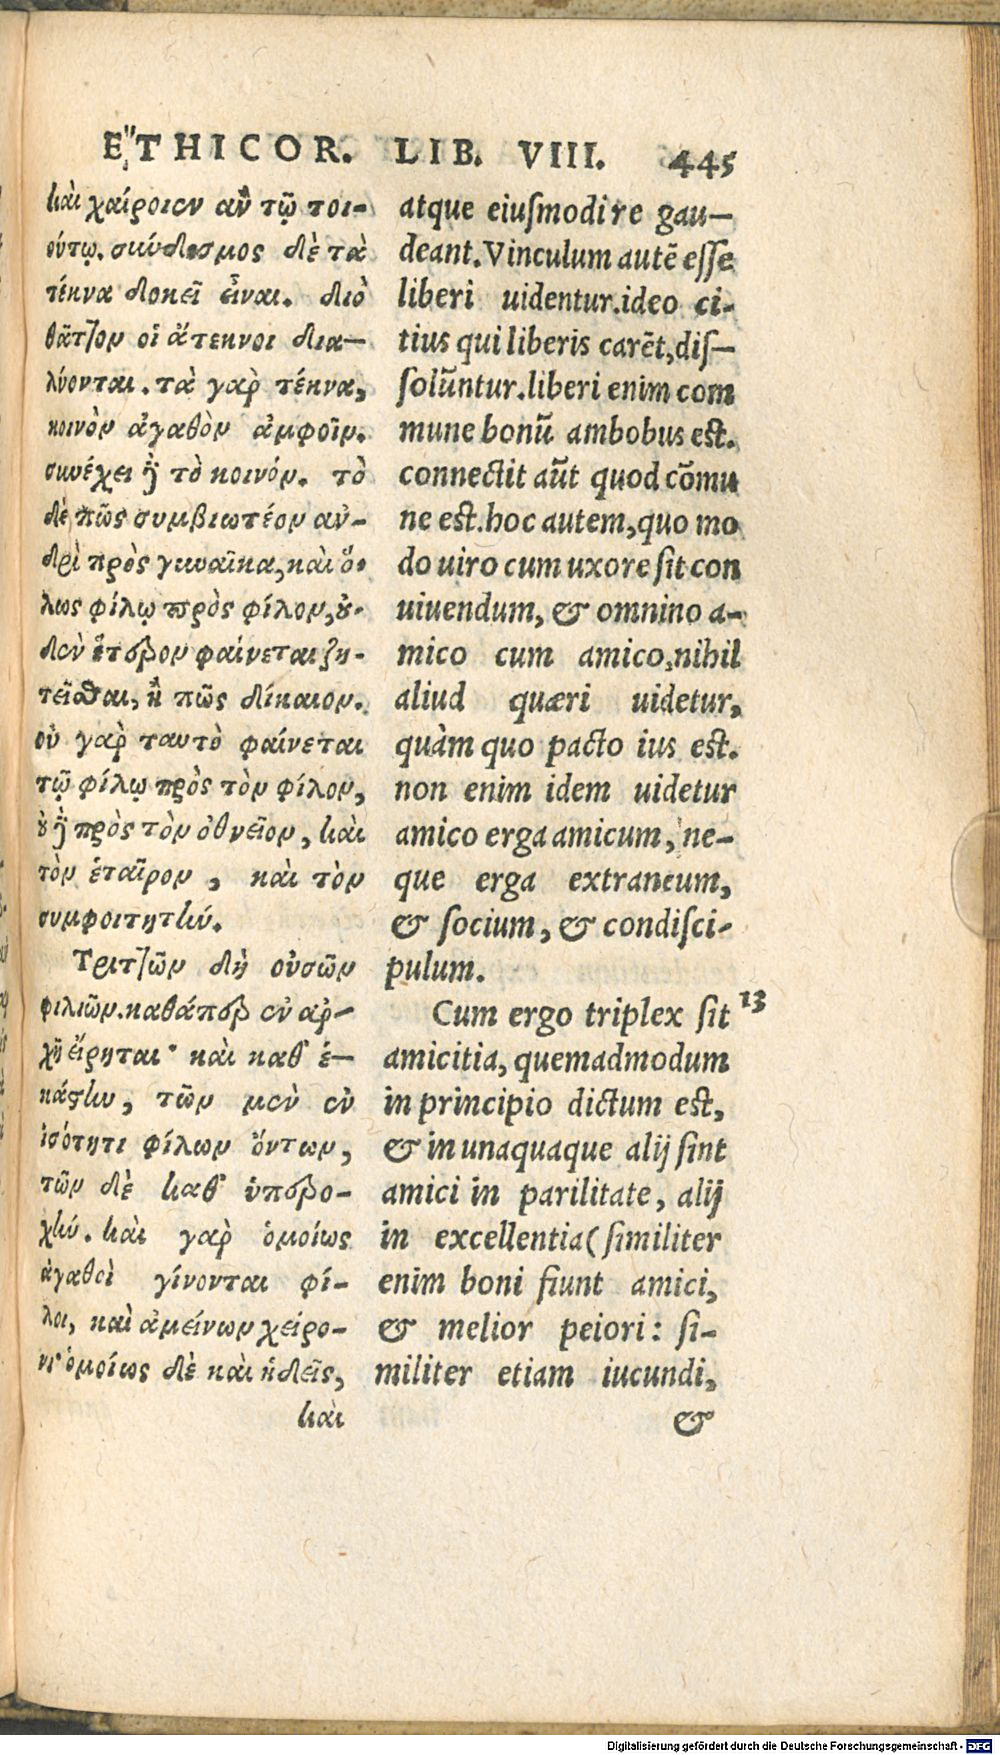 ETHICOR. LIB. VIII. 445
καὶ χαίροιεν ἂν τῷ τοι-
ούτῳ. σύνδεσμος δὲ τὰ
τέκνα δοκεῖ εἶναι. διὸ
θᾶττον οἱ ἄτεκνοι δια-
λύονται. τὰ γὰρ τέκνα,
κοινὸν ἀγαθὸν ἀμφοῖν.
συνέχει δὲ τὸ κοινόν. τὸ
δὲ πῶς συμβιωτέον ἀν-
δρὶ πρὸς γυναῖκα, καὶ ὅ-
λως φίλῳ πρὸς φίλον, ȣ-
δὲν ἕτερον φαίνεται ζη-
τεῖσθαι, ἢ πῶς δίκαιον.
οὐ γὰρ ταυτὸ φαίνεται
τῷ φίλῳ πρὸς τὸν φίλον,
ȣ̓ δὲ πρὸς τὸν ὀθνεῖον, καὶ
τὸν ἑταῖρον, καὶ τὸν
συμφοιτητήν.
Τριττῶν δὴ οὐσῶν
φιλιῶν. καθάπερ ἐν ἀρ-
χῇ εἴρηται· καὶ καθ' ἑ-
κάστην, τῶν μὲν ἐν
ἰσότητι φίλων ὄντων,
τῶν δὲ καθ' ὑπερο-
χήν. καὶ γὰρ ὁμοίως
ἀγαθοὶ γίνονται φί-
λοι, καὶ ἀμείνων χείρο-
νι· ὁμοίως δὲ καὶ ἡδεῖς,
καὶ
atque eiuſmodi re gau-
deant. Vinculum autẽ eſſe
liberi uidentur. ideo ci-
tius qui liberis carẽt, diſ-
ſolũntur. liberi enim com
mune bonũ ambobus est.
connectit aũt quod cõmu
ne est. hoc autem, quo mo
do uiro cum uxore ſit con
uiuendum, & omnino a-
mico cum amico, nihil
aliud quæri uidetur,
quàm quo pacto ius est.
non enim idem uidetur
amico erga amicum, ne-
que erga extraneum,
& ſocium, & condiſci-
pulum.
Cum ergo triplex ſit 13
amicitia, quemadmodum
in principio dictum est,
& in unaquaque alij ſint
amici in parilitate, alij
in excellentia (ſimiliter
enim boni fiunt amici,
& melior peiori: ſi-
militer etiam iucundi,
&
Digitalisierung gefördert durch die Deutsche Forschungsgemeinschaft - DFG